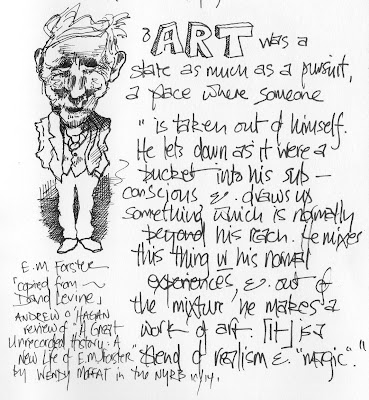 ART was a
state as much as a pursuit,
a place where someone
" is taken out of himself.
He lets down as it were a
bucket into his sub-
conscious, &. draws up
something which is normally
beyond his reach. He mixes
this thing w his normal
experiences, &. out of
the mixture he makes a
work of art. [It] is a
"blend of realism &. "magic"."
E.M. Forster
"copied from ~
David Levine"
ANDREW O'HAGAN
review of "A Great
Unrecorded History: A
New Life of E.M. Forster"
by WENDY MOFFAT in the NYRB 10/14.